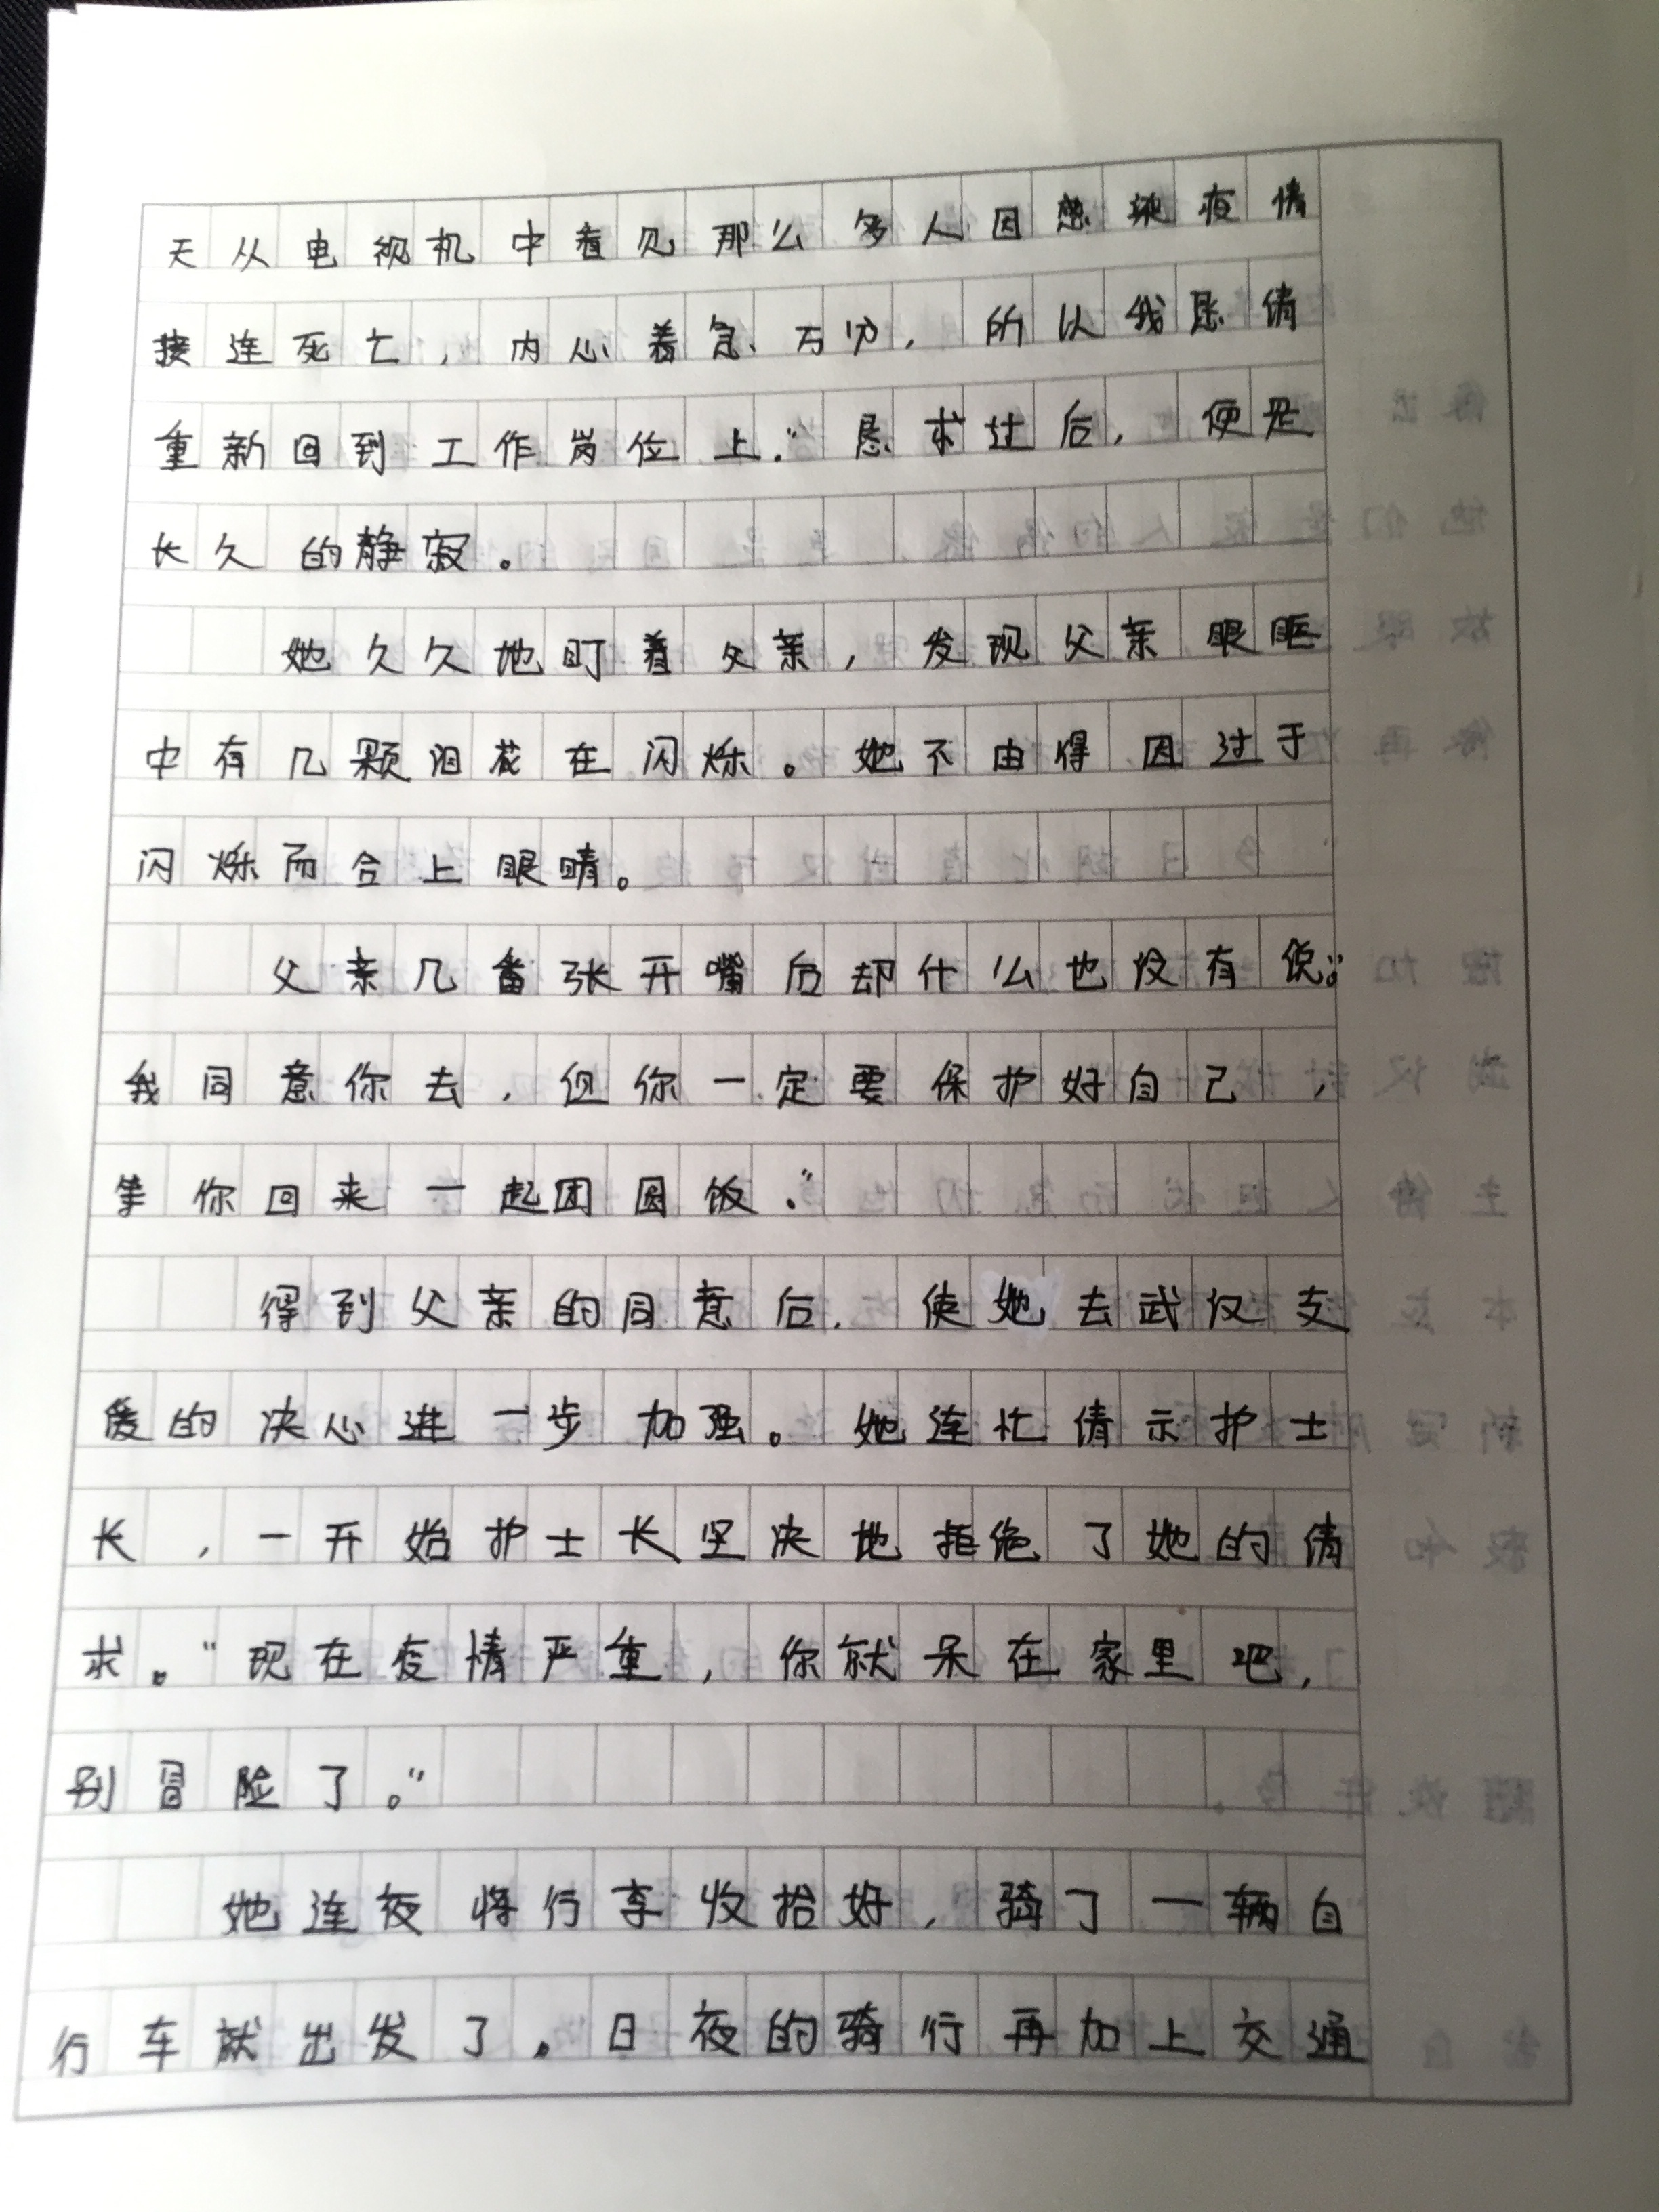 天从电视机中看见那么多人因感染疫情
接连死亡，内心着急万分，所以我恳请
重新回到工作岗位上."恳求过后，便是
长久的静寂。
她久久地盯着父亲，发现父亲眼眶
中有几颗泪花在闪烁。她不由得因过于
闪烁而合上眼睛。
父亲几番张开嘴后却什么也没有说。"
我同意你去，但你一定要保护好自己，
等你回来一起团圆饭."
得到父亲的同意后，使她去武汉支
援的决心进一步加强。她连忙请示护士
长，一开始护士长坚决地拒绝了她的请
求。"现在疫情严重，你就呆在家里吧，
别冒险了。"
她连夜将行李收拾好，骑了一辆自
行车就出发了。日夜的骑行再加上交通